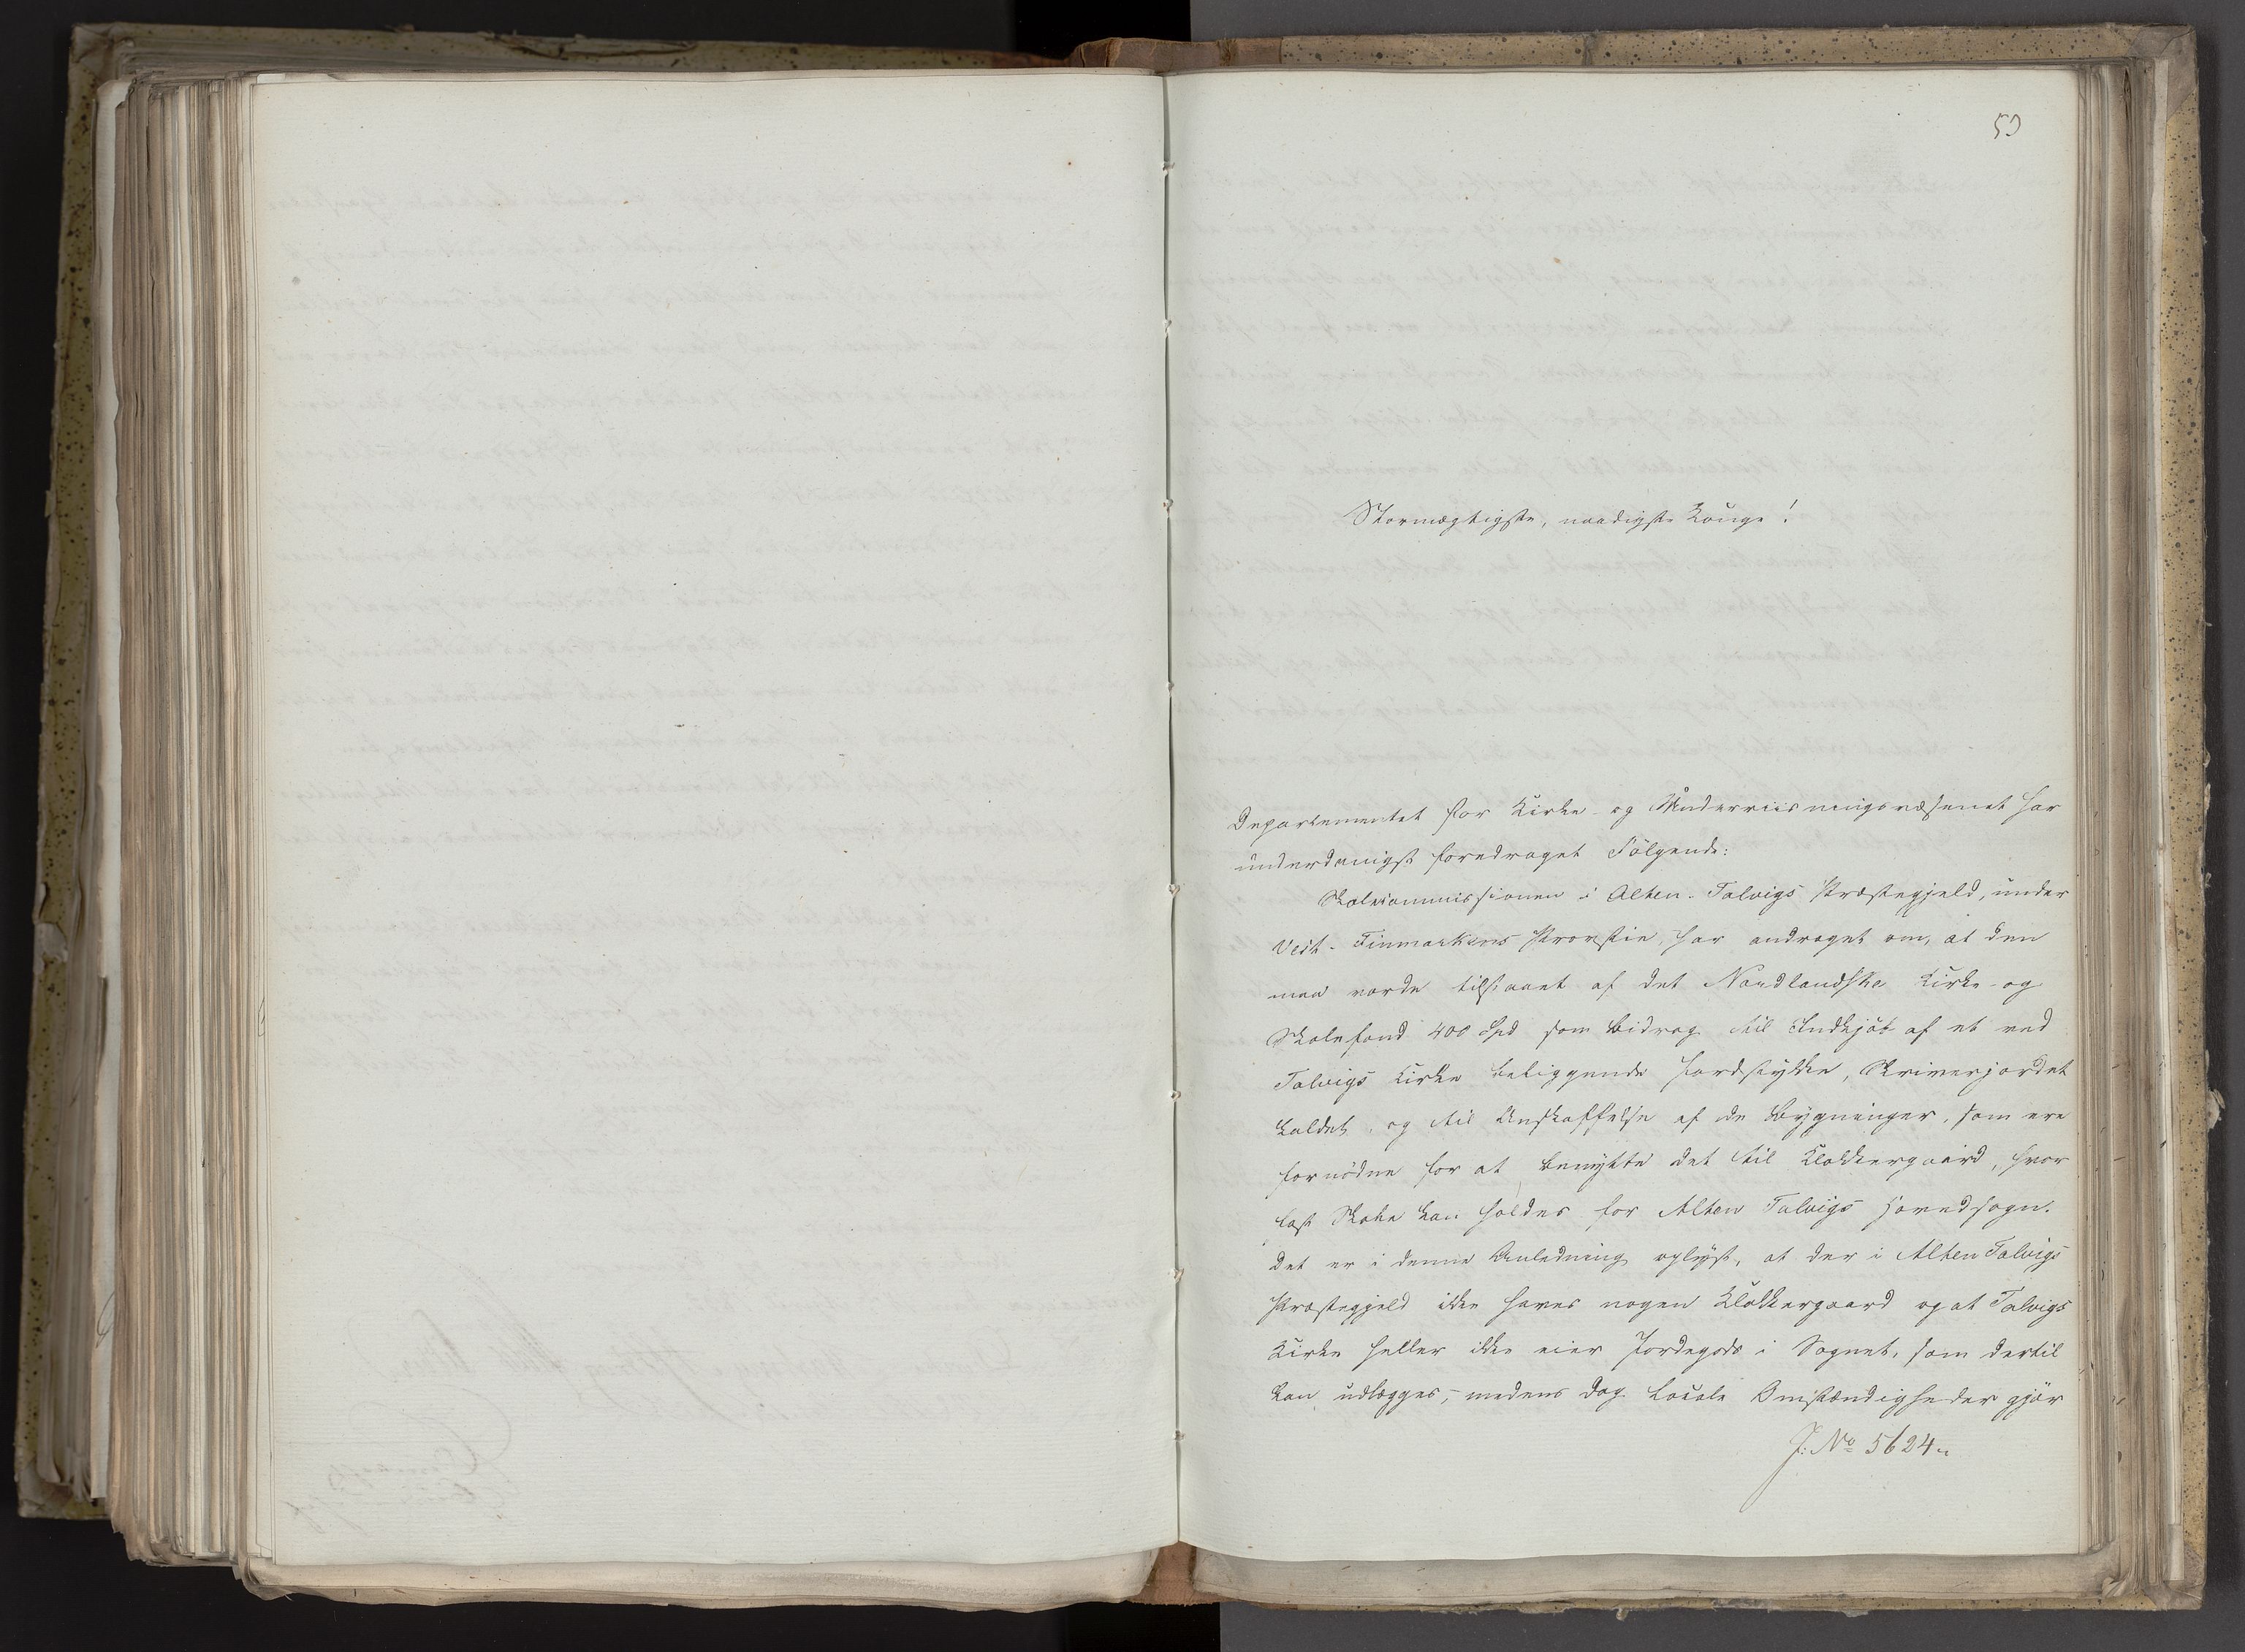 Stormægtigste, naadigste Konge!
Departementet for Kirke- og Underviisningsvæsenet har
underdanigst foredraget Følgende:
Skolecommissionen i Alten-Talvigs Præstegjeld, under
Vest-Finmarkens Provstie, har andraget om, at den
maa vorde tilstaaet af det Nordlandske Kirke- og
Skolefond 400 Spd som Bidrag til Indkjöb af et ved
Talvigs Kirke beliggende Jordstykke, Skriverjordet
kaldet, og til Anskaffelse af de Bygninger, som ere
fornödne for at benytte det til Klokkergaard, hvor
fast Skole kan holdes for Alten Talvigs Hovedsogn.
Det er i denne Anledning oplyst, at der i Alten Talvigs
Præstegjeld ikke haves nogen Klokkergaard og at Talvigs
Kirke heller ikke eier Jordegods i Sognet, som dertil
kan udlægges, medens dog locale Omstændigheder gjör
J: No 5624